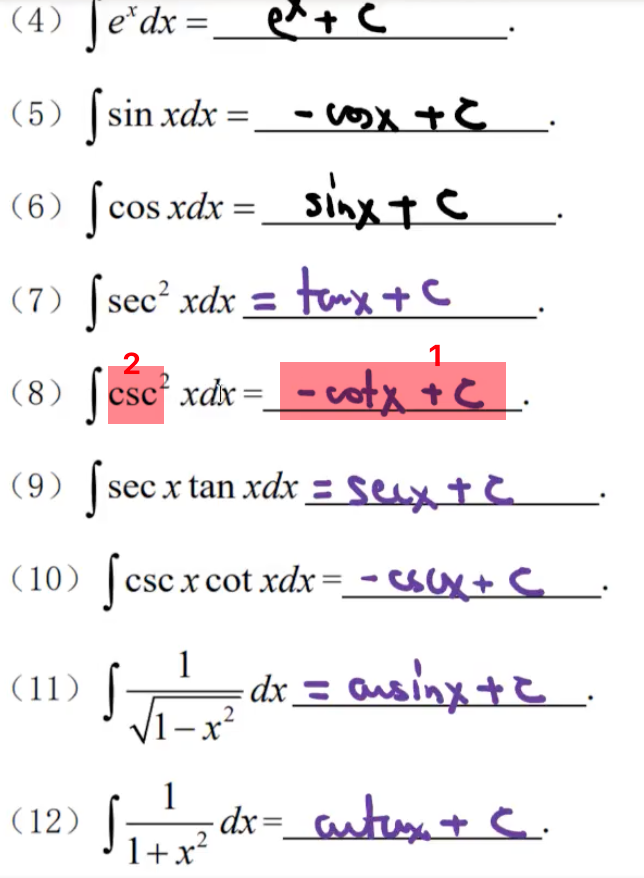 (4) ∫eˣdx = eˣ + C.
(5) ∫sin xdx = - cosx + C.
(6) ∫cos xdx = sinx + C.
(7) ∫sec² xdx = tanx + C.
2 1
(8) ∫csc² xdx = - cotx + C.
(9) ∫sec x tan xdx = secx + C.
(10) ∫csc x cot xdx = - cscx + C.
(11) ∫ 1/√(1-x²) dx = arcsinx + C.
(12) ∫ 1/(1+x²) dx = arctanx + C.